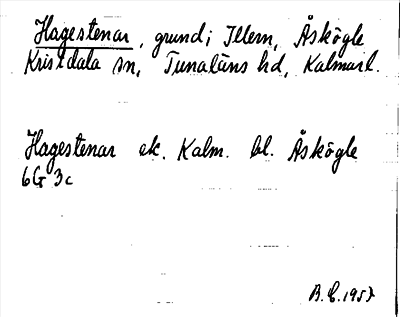 Hagestenar, grund i Illern, Åskögle
Kristdala sn, Tunaläns hd, Kalmarl.
Hagestenar ek. Kalm. bl. Åskögle
6G 3c
B.E. 1957